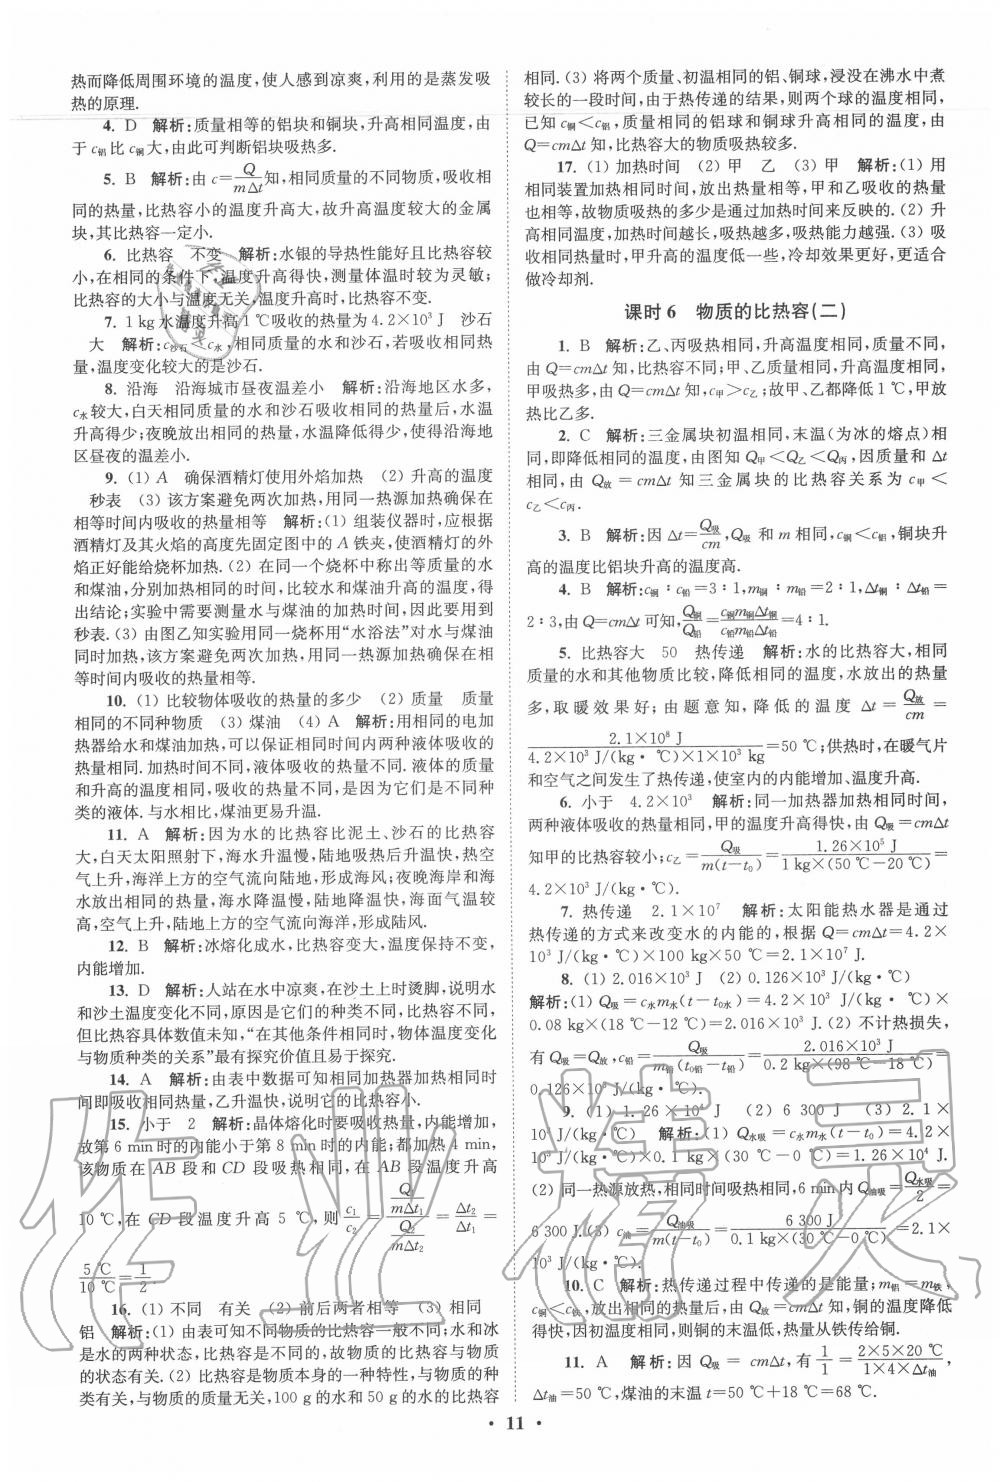 热而降低周围环境的温度,使人感到凉爽,利用的是蒸发吸
热的原理.
4. D 解析:质量相等的铝块和铜块,升高相同温度,由
于c铝比c铜大,由此可判断铝块吸热多.
5. B 解析:由c=Q/mΔt知,相同质量的不同物质,吸收相
同的热量,比热容小的温度升高大,故升高温度较大的金属
块,其比热容一定小.
6. 比热容 不变 解析:水银的导热性能好且比热容较
小,在相同的条件下,温度升高得快,测量体温时较为灵敏;
比热容的大小与温度无关,温度升高时,比热容不变.
7. 1 kg水温度升高1 ℃吸收的热量为4.2×10³ J 沙石
大 解析:c沙石<c水,相同质量的水和沙石,若吸收相同热
量,温度变化较大的是沙石.
8. 沿海 沿海城市昼夜温差小 解析:沿海地区水多,
c水较大,白天相同质量的水和沙石吸收相同的热量后,水温
升高得少;夜晚放出相同的热量,水温降低得少,使得沿海地
区昼夜的温差小.
9. (1) A 确保酒精灯使用外焰加热 (2) 升高的温度
秒表 (3) 该方案避免两次加热,用同一热源加热确保在
相等时间内吸收的热量相等 解析:(1) 组装仪器时,应根据
酒精灯及其火焰的高度先固定图中的 A 铁夹,使酒精灯的外
焰正好能给烧杯加热.(2) 在同一个烧杯中称出等质量的水
和煤油,分别加热相同的时间,比较水和煤油升高的温度,得
出结论;实验中需要测量水与煤油的加热时间,因此要用到
秒表.(3) 由图乙知实验用同一烧杯用“水浴法”对水与煤油
同时加热,该方案避免两次加热,用同一热源加热确保在相
等时间内吸收的热量相等.
10. (1) 比较物体吸收的热量的多少 (2) 质量 质量
相同的不同种物质 (3) 煤油 (4) A 解析:用相同的电加
热器给水和煤油加热,可以保证相同时间内两种液体吸收的
热量相同.加热时间不同,液体吸收的热量不同.液体的质量
和升高的温度相同,吸收的热量不同,是因为它们是不同种
类的液体.与水相比,煤油更易升温.
11. A 解析:因为水的比热容比泥土、沙石的比热容
大,白天太阳照射下,海水升温慢,陆地吸热后升温快,热空
气上升,海洋上方的空气流向陆地,形成海风;夜晚海岸和海
水放出相同的热量,海水降温慢,陆地降温快,海水温度较
高,空气上升,陆地上方的空气流向海洋,形成陆风.
12. B 解析:冰熔化成水,比热容变大,温度保持不变,
内能增加.
13. D 解析:人站在水中凉爽,在沙土上时烫脚,说明水
和沙土温度变化不同,原因是它们的种类不同,比热容不同,
但比热容具体数值未知,“在其他条件相同时,物体温度变化
与物质种类的关系”最有探究价值且易于探究.
14. A 解析:由表中数据可知相同加热器加热相同时
间即吸收相同热量,乙升温快,说明它的比热容小.
15. 小于 2 解析:晶体熔化时要吸收热量,内能增加,
故第6 min时的内能小于第8 min时的内能;都加热4 min,
该物质在 AB 段和 CD 段吸热相同,在 AB 段温度升高
10 ℃,在 CD 段温度升高 5 ℃,则c₁/c₂=(Q/mΔt₁)/(Q₂/mΔt₂)=Δt₂/Δt₁=
5 ℃/10 ℃=1/2.
16. (1) 不同 有关 (2) 前后两者相等 (3) 相同
铝 解析:(1) 由表可知不同物质的比热容一般不同;水和冰
是水的两种状态,比热容是不同的,故物质的比热容与物质
的状态有关.(2) 比热容是物质本身的一种特性,与物质的种
类有关,与物质的质量无关,100 g的水和50 g的水比热容
相同.(3) 将两个质量、初温相同的铝、铜球,浸没在沸水中煮
较长的一段时间,由于热传递的结果,则两个球的温度相同,
已知 c铜<c铝,质量相同的铝球和铜球升高相同的温度,由
Q=cmΔt知,比热容大的物质吸热较多.
17. (1) 加热时间 (2) 甲 乙 (3) 甲 解析:(1) 用
相同装置加热相同时间,放出热量相等,甲和乙吸收的热量
也相等,故物质吸热的多少是通过加热时间来反映的.(2) 升
高相同温度,加热时间越长,吸热越多,吸热能力越强.(3) 吸
收相同热量时,甲升高的温度低一些,冷却效果更好,更适合
做冷却剂.
课时6 物质的比热容(二)
1. B 解析:乙、丙吸热相同,升高温度相同,质量不同,
由 Q=cmΔt知,比热容不同;甲、乙质量相同,升高温度相同,
甲吸热多,由 Q=cmΔt知,c甲>c乙;故甲、乙都降低1 ℃,甲放
热比乙多.
2. C 解析:三金属块初温相同,末温(为冰的熔点)相
同,即降低相同的温度,由图知 Q甲<Q乙<Q丙,因质量和 Δt
相同,由 Q放=cmΔt知三金属块的比热容关系为 c甲<
c乙<c丙.
3. B 解析:因 Δt=Q吸/cm,Q吸 和 m 相同,c铜<c铝,铜块升
高的温度比铝块升高的温度高.
4. B 解析:c铜∶c铅=3∶1,m铜∶m铅=2∶1,Δt铜∶Δt铅=
2∶3,由 Q=cmΔt 可知,Q铜/Q铅=c铜m铜Δt铜/c铅m铅Δt铅=4∶1.
5. 比热容大 50 热传递 解析:水的比热容大,相同
质量的水和其他物质比较,降低相同的温度,水放出的热量
多,取暖效果好;由题意知,降低的温度 Δt=Q放/cm=
2.1×10⁸ J/4.2×10³ J/(kg·℃)×1×10³ kg=50 ℃;供热时,在暖气片
和空气之间发生了热传递,使室内的内能增加、温度升高.
6. 小于 4.2×10³ 解析:同一加热器加热相同时间,
两种液体吸收热量相同,甲的温度升高得快,由 Q吸=cmΔt
知甲的比热容较小;c乙=Q吸/m(t-t₀)=1.26×10⁵ J/1 kg×(50 ℃-20 ℃)=
4.2×10³ J/(kg·℃).
7. 热传递 2.1×10⁷ 解析:太阳能热水器是通过
热传递的方式来改变水的内能的,根据 Q=cmΔt=4.2×
10³ J/(kg·℃)×100 kg×50 ℃=2.1×10⁷ J.
8. (1) 2.016×10³ J (2) 0.126×10³ J/(kg·℃)
解析:(1) Q吸=c水m水(t-t0水)=4.2×10³ J/(kg·℃)×
0.08 kg×(18 ℃-12 ℃)=2.016×10³ J.(2) 不计热损失,
有 Q吸=Q放,c铅=Q吸/m铅(t0铅-t铅)=2.016×10³ J/0.2 kg×(98 ℃-18 ℃)=
0.126×10³ J/(kg·℃).
9. (1) 1.26×10⁴ J (2) 6 300 J (3) 2.1×
10³ J/(kg·℃) 解析:(1) Q水吸=c水m水(t-t₀)=4.2×
10³ J/(kg·℃)×0.1 kg×(30 ℃-0 ℃)=1.26×10⁴ J.
(2) 同一热源放热,相同时间吸热相同,6 min内 Q油吸=Q水吸/2=
6 300 J.(3) c油=Q油吸/m(t-t₀)=6 300 J/0.1 kg×(30 ℃-0 ℃)=2.1×
10³ J/(kg·℃).
10. C 解析:热传递过程中传递的是能量;m铝=m铁,
c铜<c铁,放出相同的热量后,由 Q放=cmΔt知,铜的温度降低
得快,因初温度相同,则铜的末温低,热量从铁传给铜.
11. A 解析:因 Q吸=cmΔt,有1/1=2×5×20 ℃/1×4×Δt油,
Δt油=50 ℃,煤油的末温 t=50 ℃+18 ℃=68 ℃.
• 11 •
作业精灵